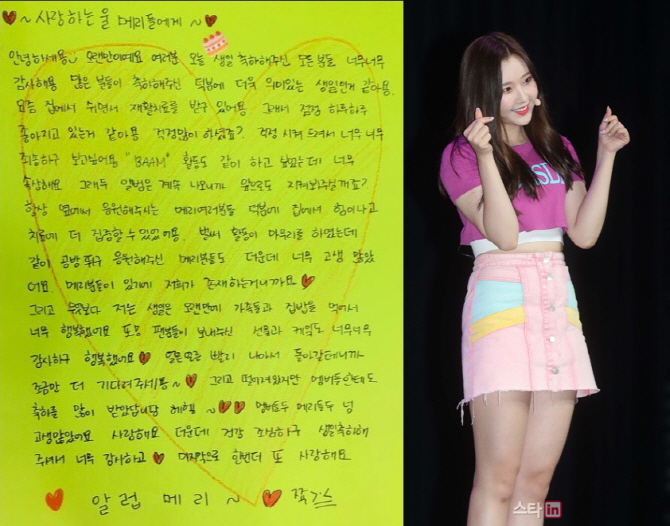 ~ 사랑하는 울 메리들에게 ~
안녕하세용~ 오랜만이에요 여러분 오늘 생일 축하해주신 모든분들 너무너무
감사해용 많은 분들이 축하해주신 덕분에 더욱 의미있는 생일인거 같아용.
요즘 집에서 쉬면서 재활치료를 받구 있어용. 그래서 점점 하루하루
좋아지고 있는거 같아용. 걱정많이 하셨죠? 걱정 시켜 드려서 너무너무
죄송하구 보고싶어용 "BAAM" 활동도 같이 하고 싶었는데 너무
속상해요 그래두 앨범은 계속 나오니까 앞으로도 지켜봐주실꺼죠?
항상 옆에서 응원해주시는 메리여러분들 덕분에 집에서 힘이나고
치료에 더 집중할 수 있었어용. 벌써 활동이 마무리를 하였는데
같이 공방 뛰구 응원해주신 메리분들도 더운데 너무 고생 많았
어요. 메리분들이 있기에 저희가 존재하는거니까요
그리고 무엇보다 저는 생일은 오랜만에 가족들과 집밥을 먹어서
너무 행복했어요 또 팬분들이 보내주신 선물과 케익도 너무너무
감사하구 행복했어요 얼른얼른 빨리 나아서 돌아갈테니까
조금만 더 기다려주세용~ 그리고 떨어져있지만 멤버들한테도
축하를 많이 받았답니당 헤헷~ 멤버들두 메리들두 넘
고생많았어요 사랑해요 더운데 건강 조심하구 생일축하해
주셔서 너무 감사하고 마지막으로 한번더 또 사랑해요
알럽 메리 ~
스타in